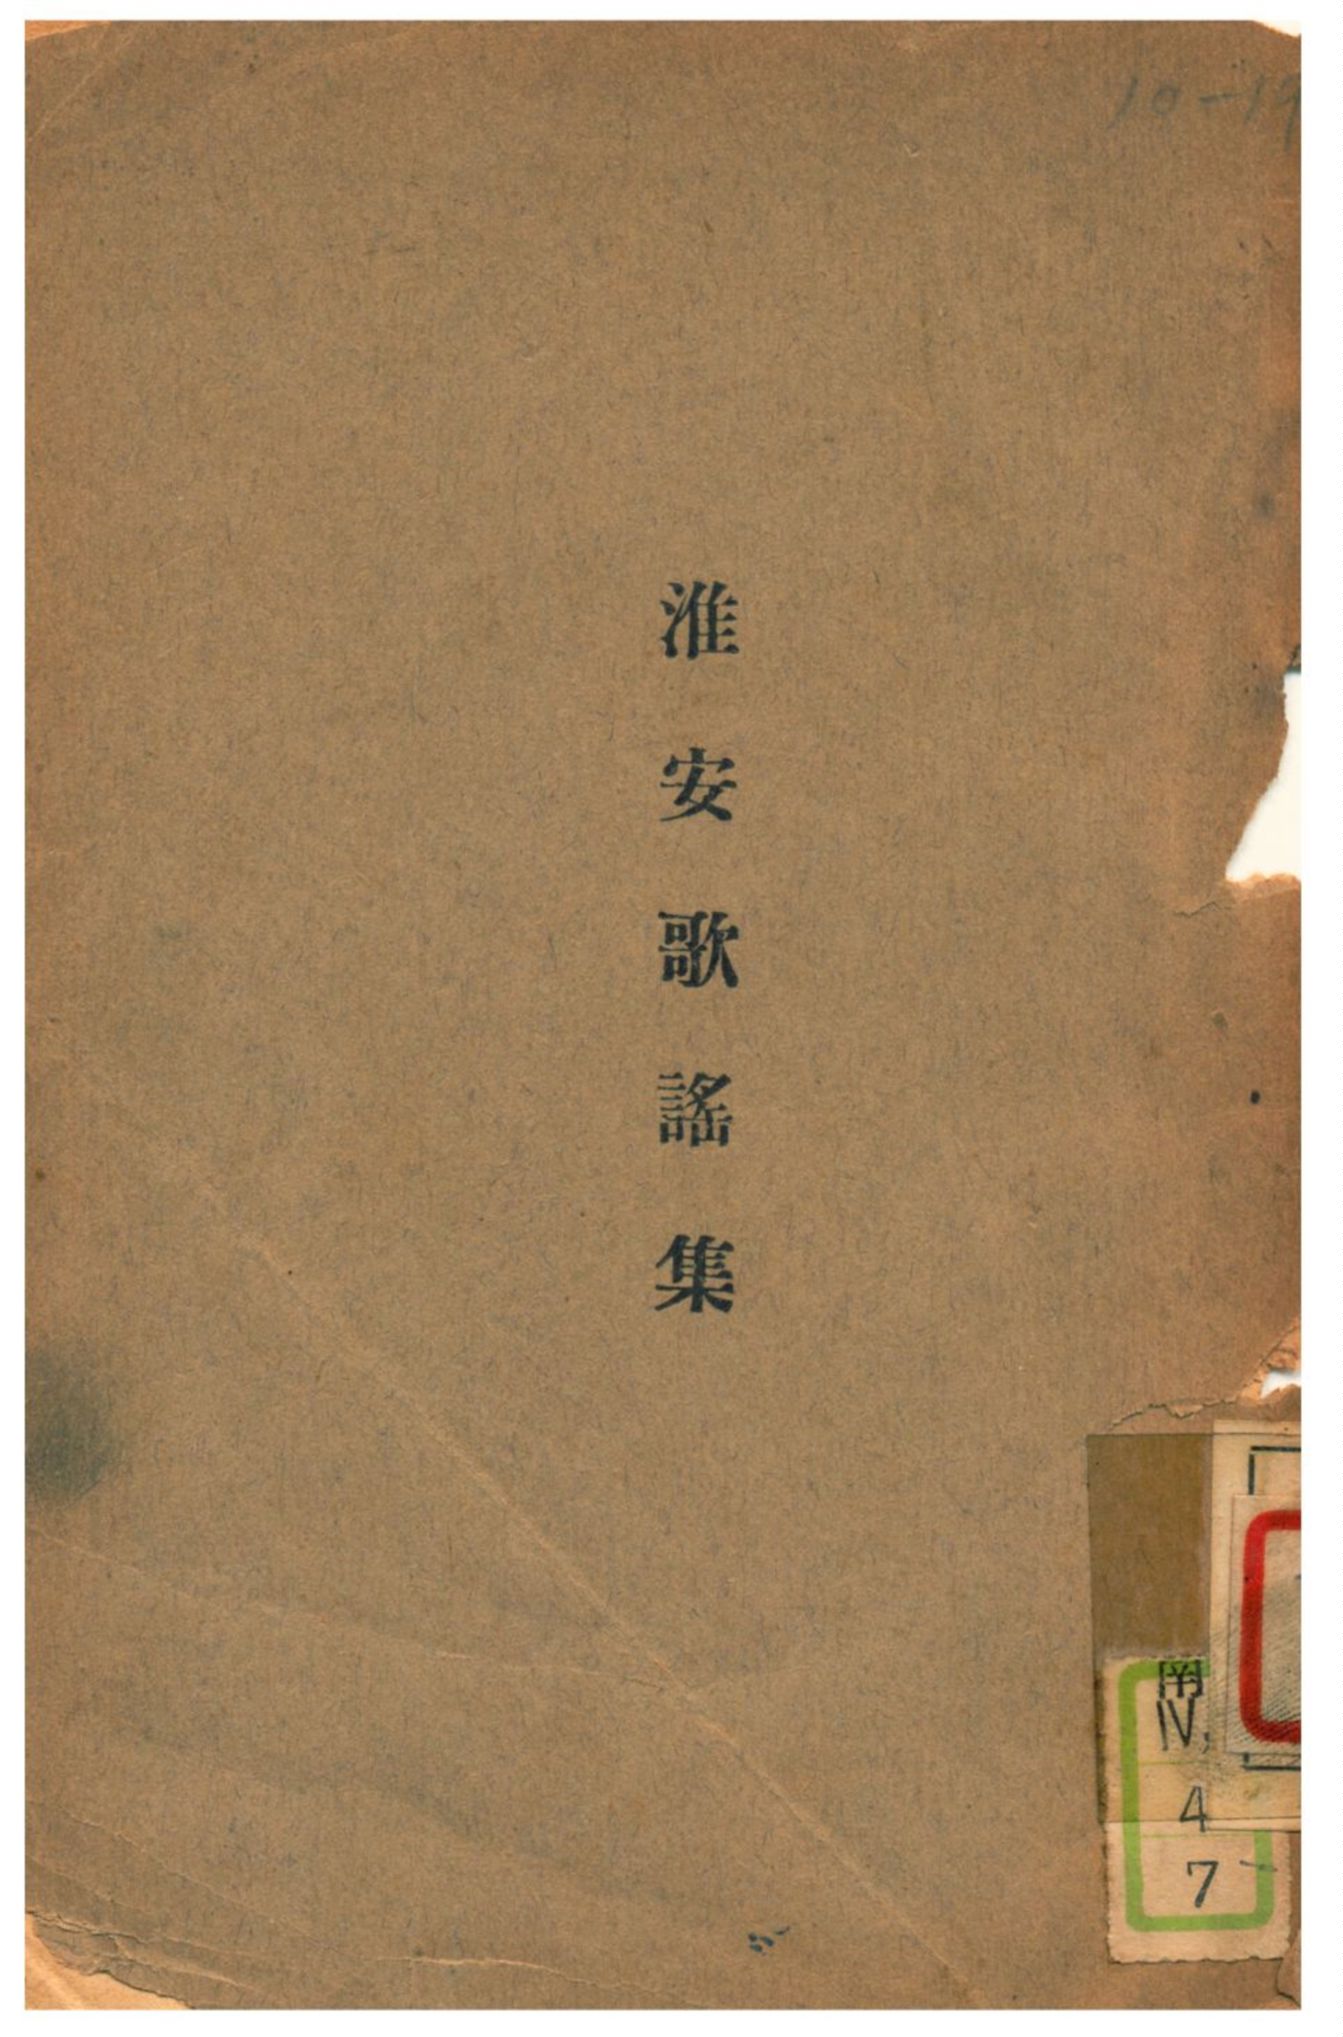 10-19
淮安歌謠集
南
IV,
4
7